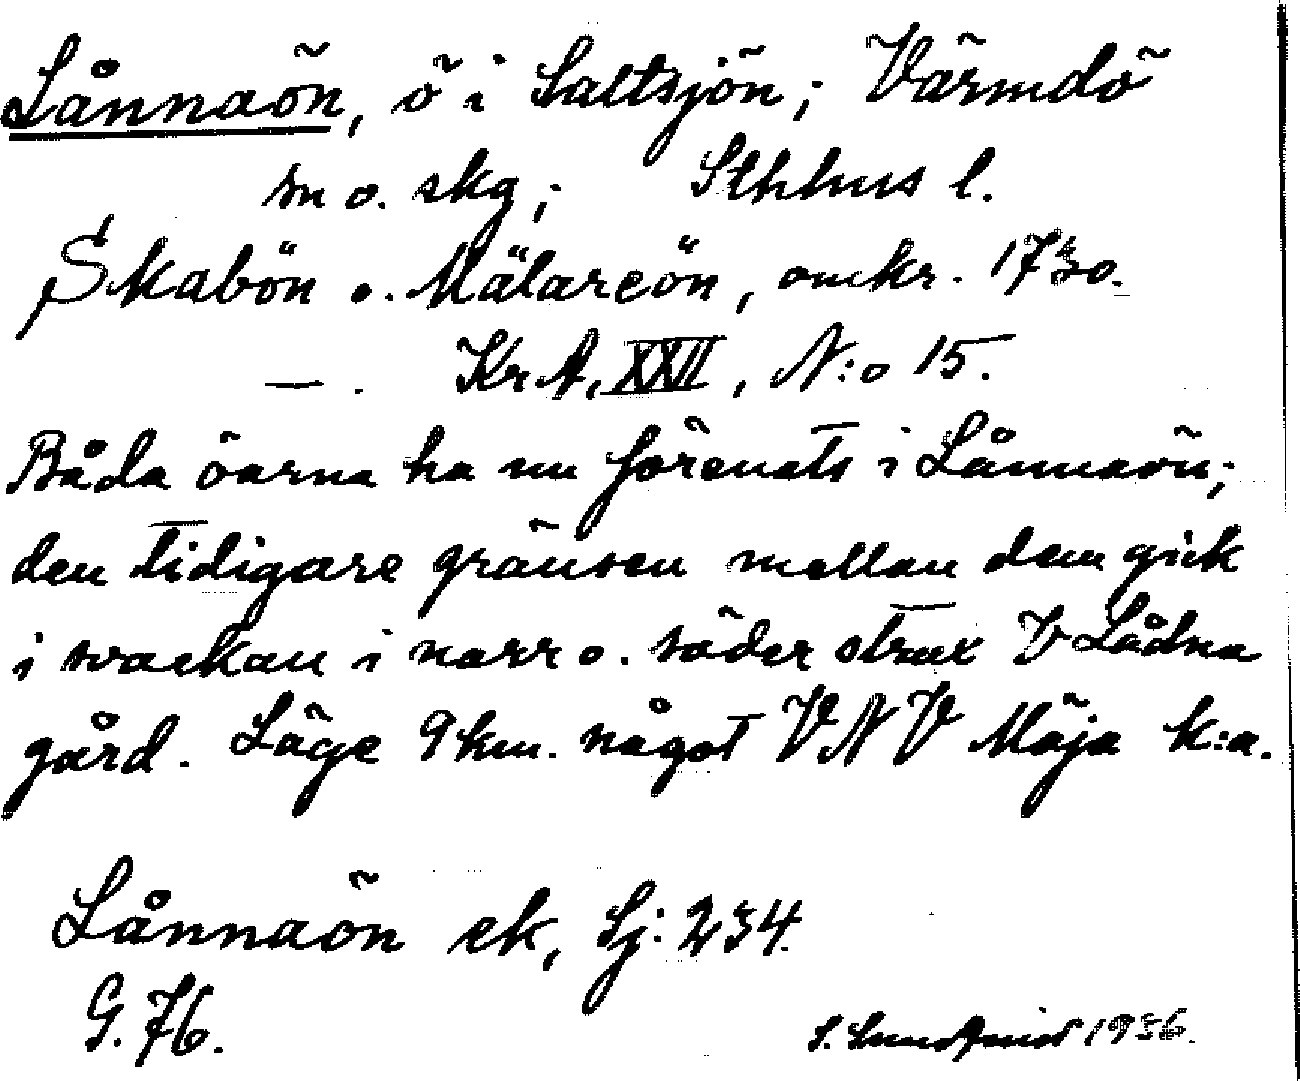 Lånnaön, ö i Saltsjön; Värmdö
sn o. skg; Sthhus l.
Skabön o. Mälareön, omkr. 1730.
— . Kr A, XXII, N:o 15.
Båda öarna ha nu förenats i Lånnaön;
den tidigare gränsen mellan dem gick
i svackan i norr o. söder strax V Lådna
gård. Läge 9 km. något VNV Möja k:a.
Lånnaön ek, Sj: 234.
G. 76.
S. Lundqvist 1936.